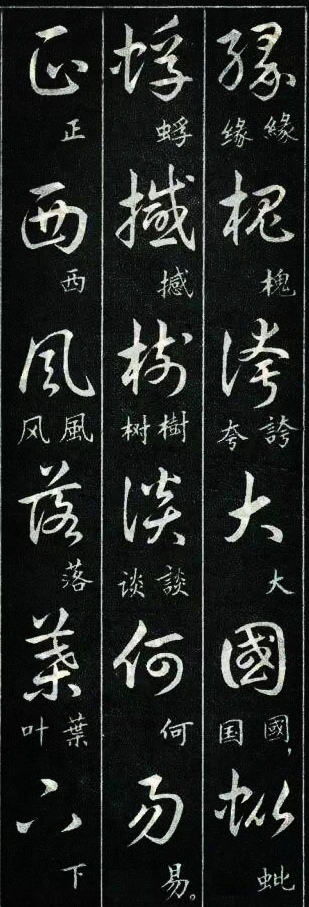 緣槐誇大國蚍
緣缘 槐 誇夸 大 國国， 蚍
蜉撼樹談何易
蜉 撼 樹树 談谈 何 易。
正西風落葉下
正 西 風风 落 葉叶 下